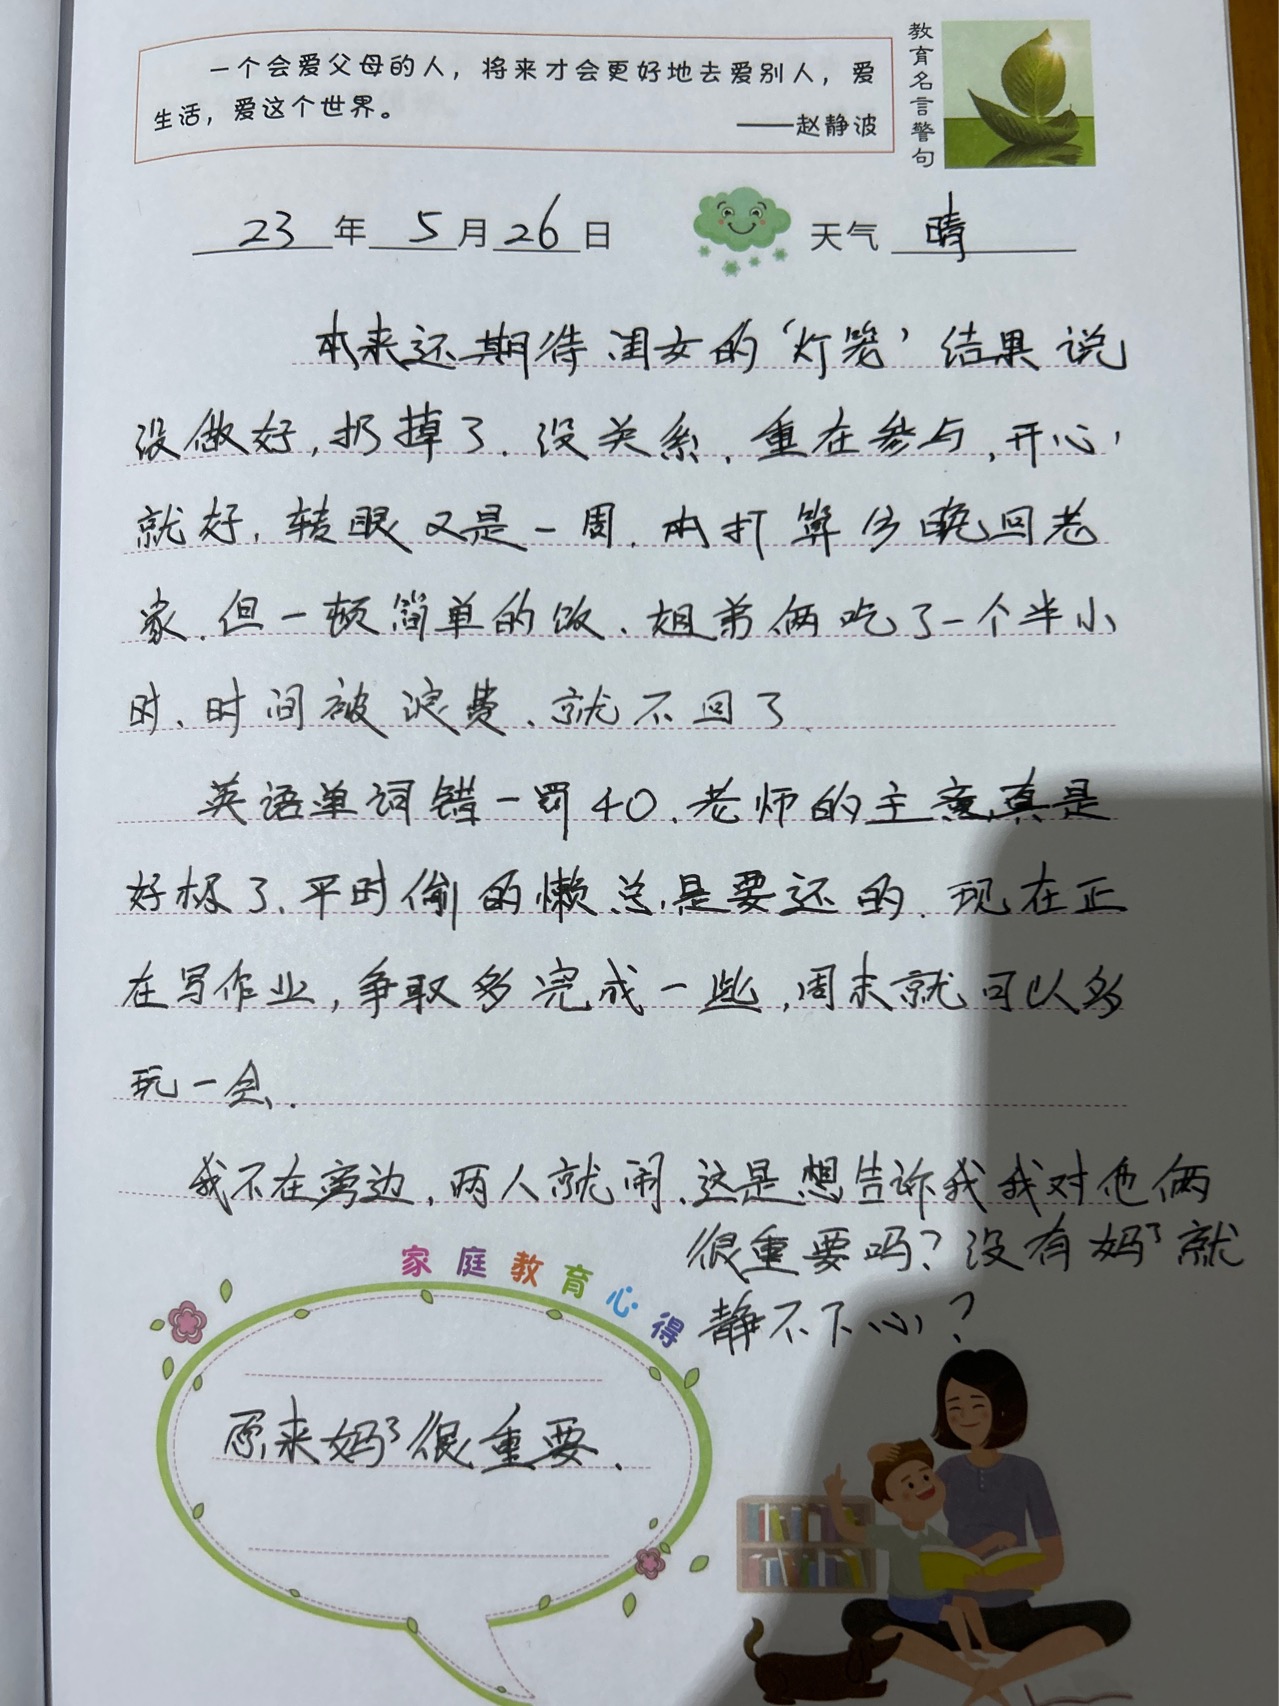 一个会爱父母的人，将来才会更好地去爱别人，爱
生活，爱这个世界。
——赵静波
教育名言警句
23年5月26日 天气 晴
本来还期待闺女的‘灯笼’结果说
没做好,扔掉了.没关系,重在参与,开心,
就好,转眼又是一周,本打算今晚回老
家.但一顿简单的饭、姐弟俩吃了一个半小
时、时间被浪费、就不回了
英语单词错一罚40、老师的主意真是
好极了、平时偷的懒总是要还的.现在正
在写作业,争取多完成一些,周末就可以多
玩一会.
我不在旁边,两人就闹、这是想告诉我我对他俩
很重要吗?没有妈了就
静不下心?
家庭教育心得
原来妈了很重要.